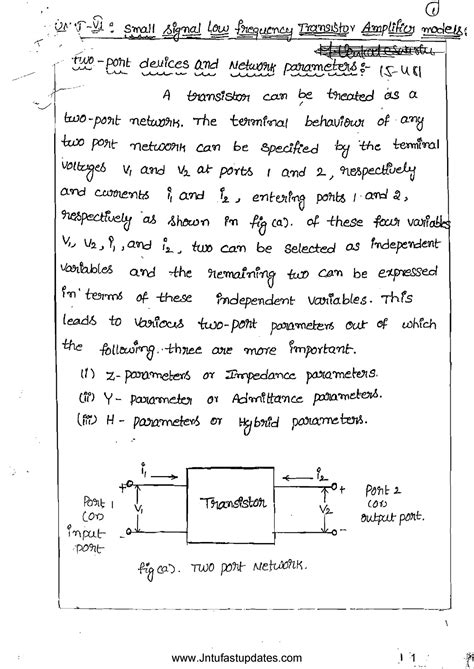 ①
UNIT-VI: Small Signal Low frequency Transistor Amplifier models:
two-port devices and Network parameters:- (5-U8)
A transistor can be treated as a
two-port network. The terminal behaviour of any
two port network can be specified by the terminal
voltages V1 and V2 at ports 1 and 2, respectively
and currents i1 and i2, entering ports 1 and 2,
respectively as shown in fig(a). of these four variables
V1, V2, i1, and i2, two can be selected as independent
variables and the remaining two can be expressed
in terms of these independent variables. This
leads to various two-port parameters out of which
the following three are more important.
(i) Z-parameters or Impedance parameters.
(ii) Y-parameter or Admittance parameters.
(iii) H-parameters or Hybrid parameters.
i1 i2
+ Port 1 (or) input port -
V1
Transistor
V2
+ Port 2 (or) output port. -
fig(a). Two port Network.
www.Jntufastupdates.com
1